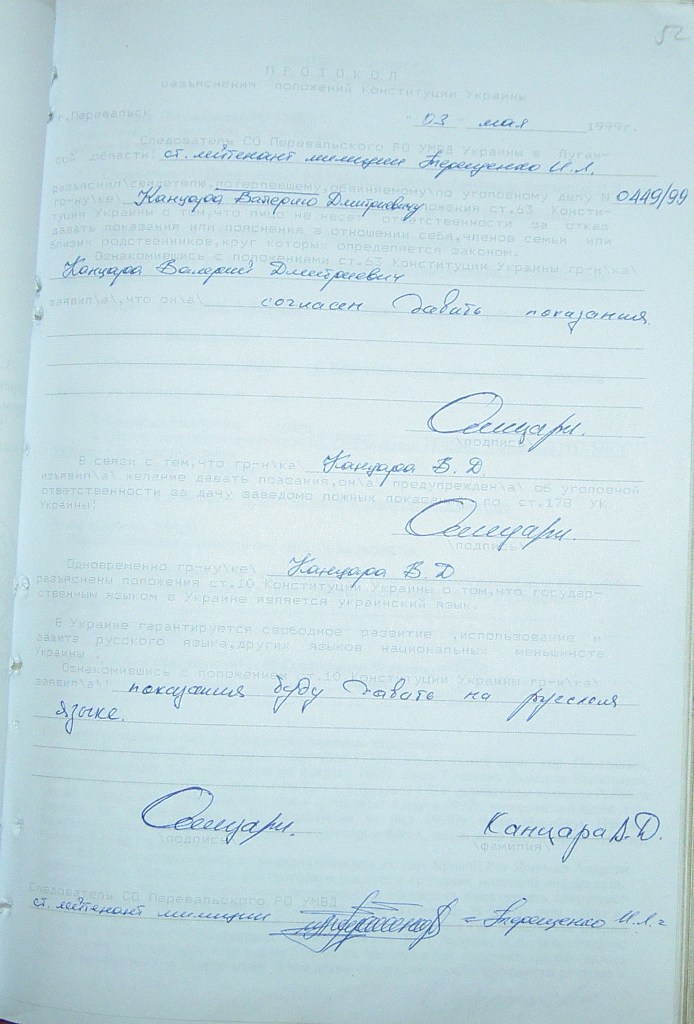 52
ПРОТОКОЛ
разъяснения положений Конституции Украины
г.Перевальск "03" мая 1999г.
Следователь СО Перевальского РО УМВД Украины в Луган-
ской области ст. лейтенант милиции Терещенко И.Л.
разъяснил\свидетелю,потерпевшему,обвиняемому\по уголовному делу N 0449/99
гр-ну\ке\ Канцара Валерию Дмитриевичу положения ст.63 Консти-
туции Украины о том,что лицо не несет ответственности за отказ
давать показания или пояснения в отношении себя,членов семьи или
близких родственников,круг которых определяется законом.
Ознакомившись с положениями ст.63 Конституции Украины гр-н\ка\
Канцара Валерий Дмитриевич
заявил\а\,что он\а\ согласен давать показания.
\подпись\
В связи с тем,что гр-н\ка\ Канцара В.Д
изъявил\а\ желание давать показания,он\а\ предупрежден\а\ об уголовной
ответственности за дачу заведомо ложных показаний по ст.178 УК
Украины:
\подпись\
Одновременно гр-ну\ке\ Канцара В.Д
разъяснены положения ст.10 Конституции Украины о том,что государ-
ственным языком в Украине является украинский язык.
В Украине гарантируется свободное развитие ,использование и
защита русского языка,других языков национальных меньшинств
Украины .
Ознакомившись с положением ст.10 Конституции Украины гр-н\ка\
заявил\а\: показания буду давать на русском
языке.
Канцара В.Д.
\подпись\ \фамилия\
Следователь СО Перевальского РО УМВД
ст. лейтенант милиции = Терещенко И.Л.=